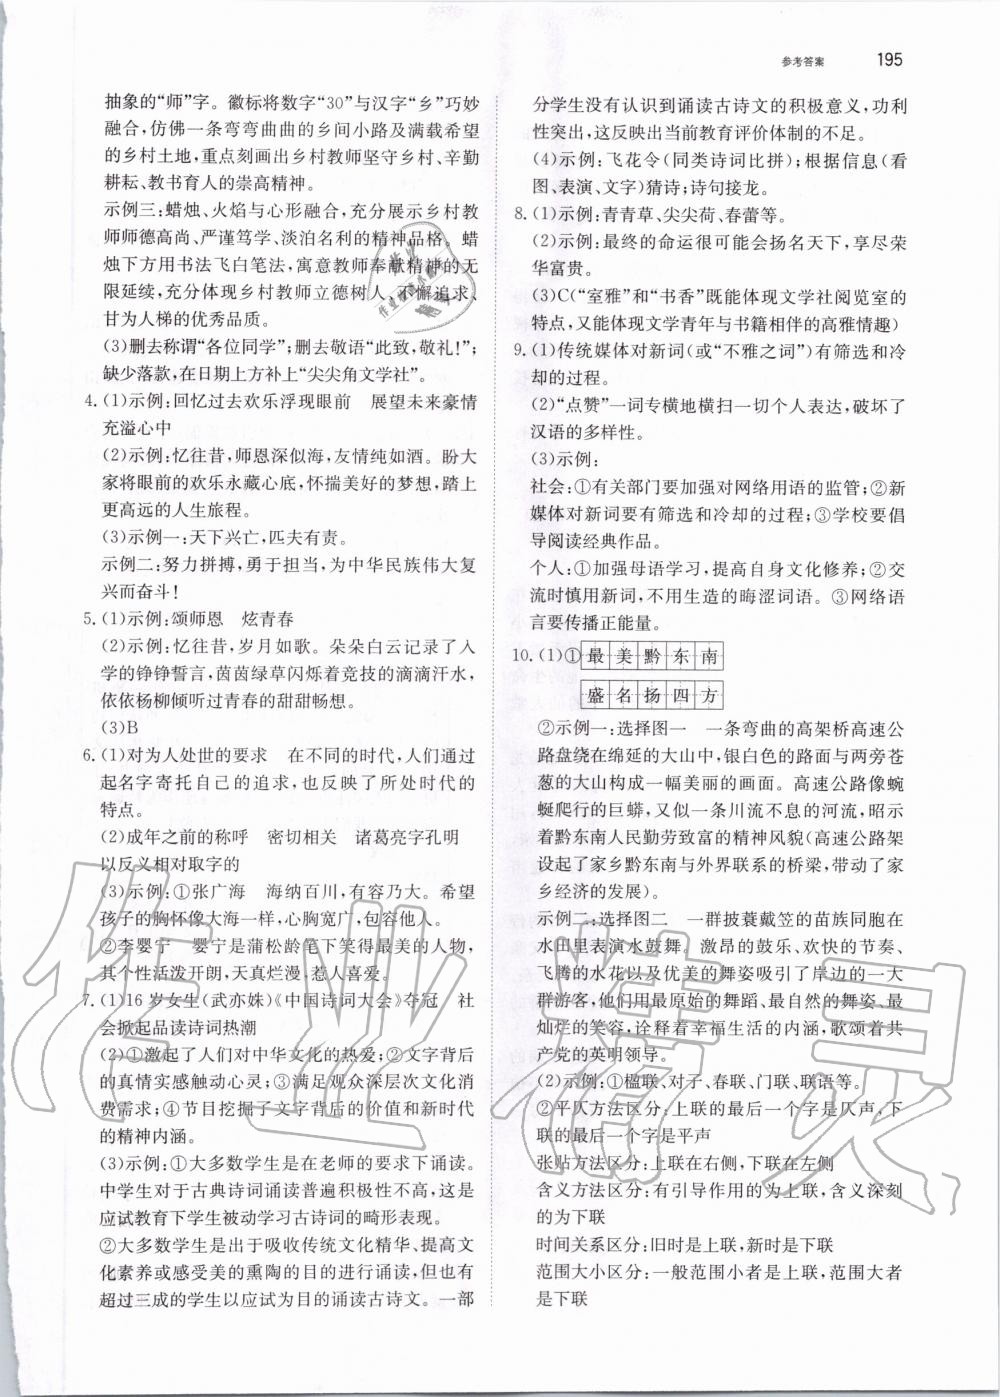 参考答案 195
抽象的“师”字。徽标将数字“30”与汉字“乡”巧妙
融合,仿佛一条弯弯曲曲的乡间小路及满载希望
的乡村土地,重点刻画出乡村教师坚守乡村、辛勤
耕耘、教书育人的崇高精神。
示例三:蜡烛、火焰与心形融合,充分展示乡村教
师师德高尚、严谨笃学、淡泊名利的精神品格。蜡
烛下方用书法飞白笔法,寓意教师奉献精神的无
限延续,充分体现乡村教师立德树人、不懈追求、
甘为人梯的优秀品质。
(3)删去称谓“各位同学”;删去敬语“此致,敬礼!”;
缺少落款,在日期上方补上“尖尖角文学社”。
4. (1)示例:回忆过去欢乐浮现眼前　展望未来豪情
充溢心中
(2)示例:忆往昔,师恩深似海,友情纯如酒。盼大
家将眼前的欢乐永藏心底,怀揣美好的梦想,踏上
更高远的人生旅程。
(3)示例一:天下兴亡,匹夫有责。
示例二:努力拼搏,勇于担当,为中华民族伟大复
兴而奋斗!
5. (1)示例:颂师恩　炫青春
(2)示例:忆往昔,岁月如歌。朵朵白云记录了入
学的铮铮誓言,茵茵绿草闪烁着竞技的滴滴汗水,
依依杨柳倾听过青春的甜甜畅想。
(3)B
6. (1)对为人处世的要求　在不同的时代,人们通过
起名字寄托自己的追求,也反映了所处时代的
特点。
(2)成年之前的称呼　密切相关　诸葛亮字孔明
以反义相对取字的
(3)示例:①张广海　海纳百川,有容乃大。希望
孩子的胸怀像大海一样,心胸宽广,包容他人。
②李婴宁　婴宁是蒲松龄笔下笑得最美的人物,
其个性活泼开朗,天真烂漫,惹人喜爱。
7. (1)16岁女生(武亦姝)《中国诗词大会》夺冠　社
会掀起品读诗词热潮
(2)①激起了人们对中华文化的热爱;②文字背后
的真情实感触动心灵;③满足观众深层次文化消
费需求;④节目挖掘了文字背后的价值和新时代
的精神内涵。
(3)示例:①大多数学生是在老师的要求下诵读。
中学生对于古典诗词诵读普遍积极性不高,这是
应试教育下学生被动学习古诗词的畸形表现。
②大多数学生是出于吸收传统文化精华、提高文
化素养或感受美的熏陶的目的进行诵读,但也有
超过三成的学生以应试为目的诵读古诗文。一部
分学生没有认识到诵读古诗文的积极意义,功利
性突出,这反映出当前教育评价体制的不足。
(4)示例:飞花令(同类诗词比拼);根据信息(看
图、表演、文字)猜诗;诗句接龙。
8. (1)示例:青青草、尖尖荷、春蕾等。
(2)示例:最终的命运很可能会扬名天下,享尽荣
华富贵。
(3)C(“室雅”和“书香”既能体现文学社阅览室的
特点,又能体现文学青年与书籍相伴的高雅情趣)
9. (1)传统媒体对新词(或“不雅之词”)有筛选和冷
却的过程。
(2)“点赞”一词专横地横扫一切个人表达,破坏了
汉语的多样性。
(3)示例:
社会:①有关部门要加强对网络用语的监管;②新
媒体对新词要有筛选和冷却的过程;③学校要倡
导阅读经典作品。
个人:①加强母语学习,提高自身文化修养;②交
流时慎用新词,不用生造的晦涩词语。③网络语
言要传播正能量。
10. (1)①最美黔东南
盛名扬四方
②示例一:选择图一　一条弯曲的高架桥高速公
路盘绕在绵延的大山中,银白色的路面与两旁苍
葱的大山构成一幅美丽的画面。高速公路像蜿
蜒爬行的巨蟒,又似一条川流不息的河流,昭示
着黔东南人民勤劳致富的精神风貌(高速公路架
设起了家乡黔东南与外界联系的桥梁,带动了家
乡经济的发展)。
示例二:选择图二　一群披蓑戴笠的苗族同胞在
水田里表演水鼓舞。激昂的鼓乐、欢快的节奏、
飞腾的水花以及优美的舞姿吸引了岸边的一大
群游客,他们用最原始的舞蹈、最奔放的热情、最
灿烂的笑容,诠释着幸福生活的内涵,歌颂着共
产党的英明领导。
(2)示例:①楹联、对子、春联、门联、联语等。
②平仄方法区分:上联的最后一个字是仄声,下
联的最后一个字是平声
张贴方法区分:上联在右侧,下联在左侧
含义方法区分:有引导作用的为上联,含义深刻
的为下联
时间关系区分:旧时是上联,新时是下联
范围大小区分:一般范围小者是上联,范围大者
是下联
作业精灵